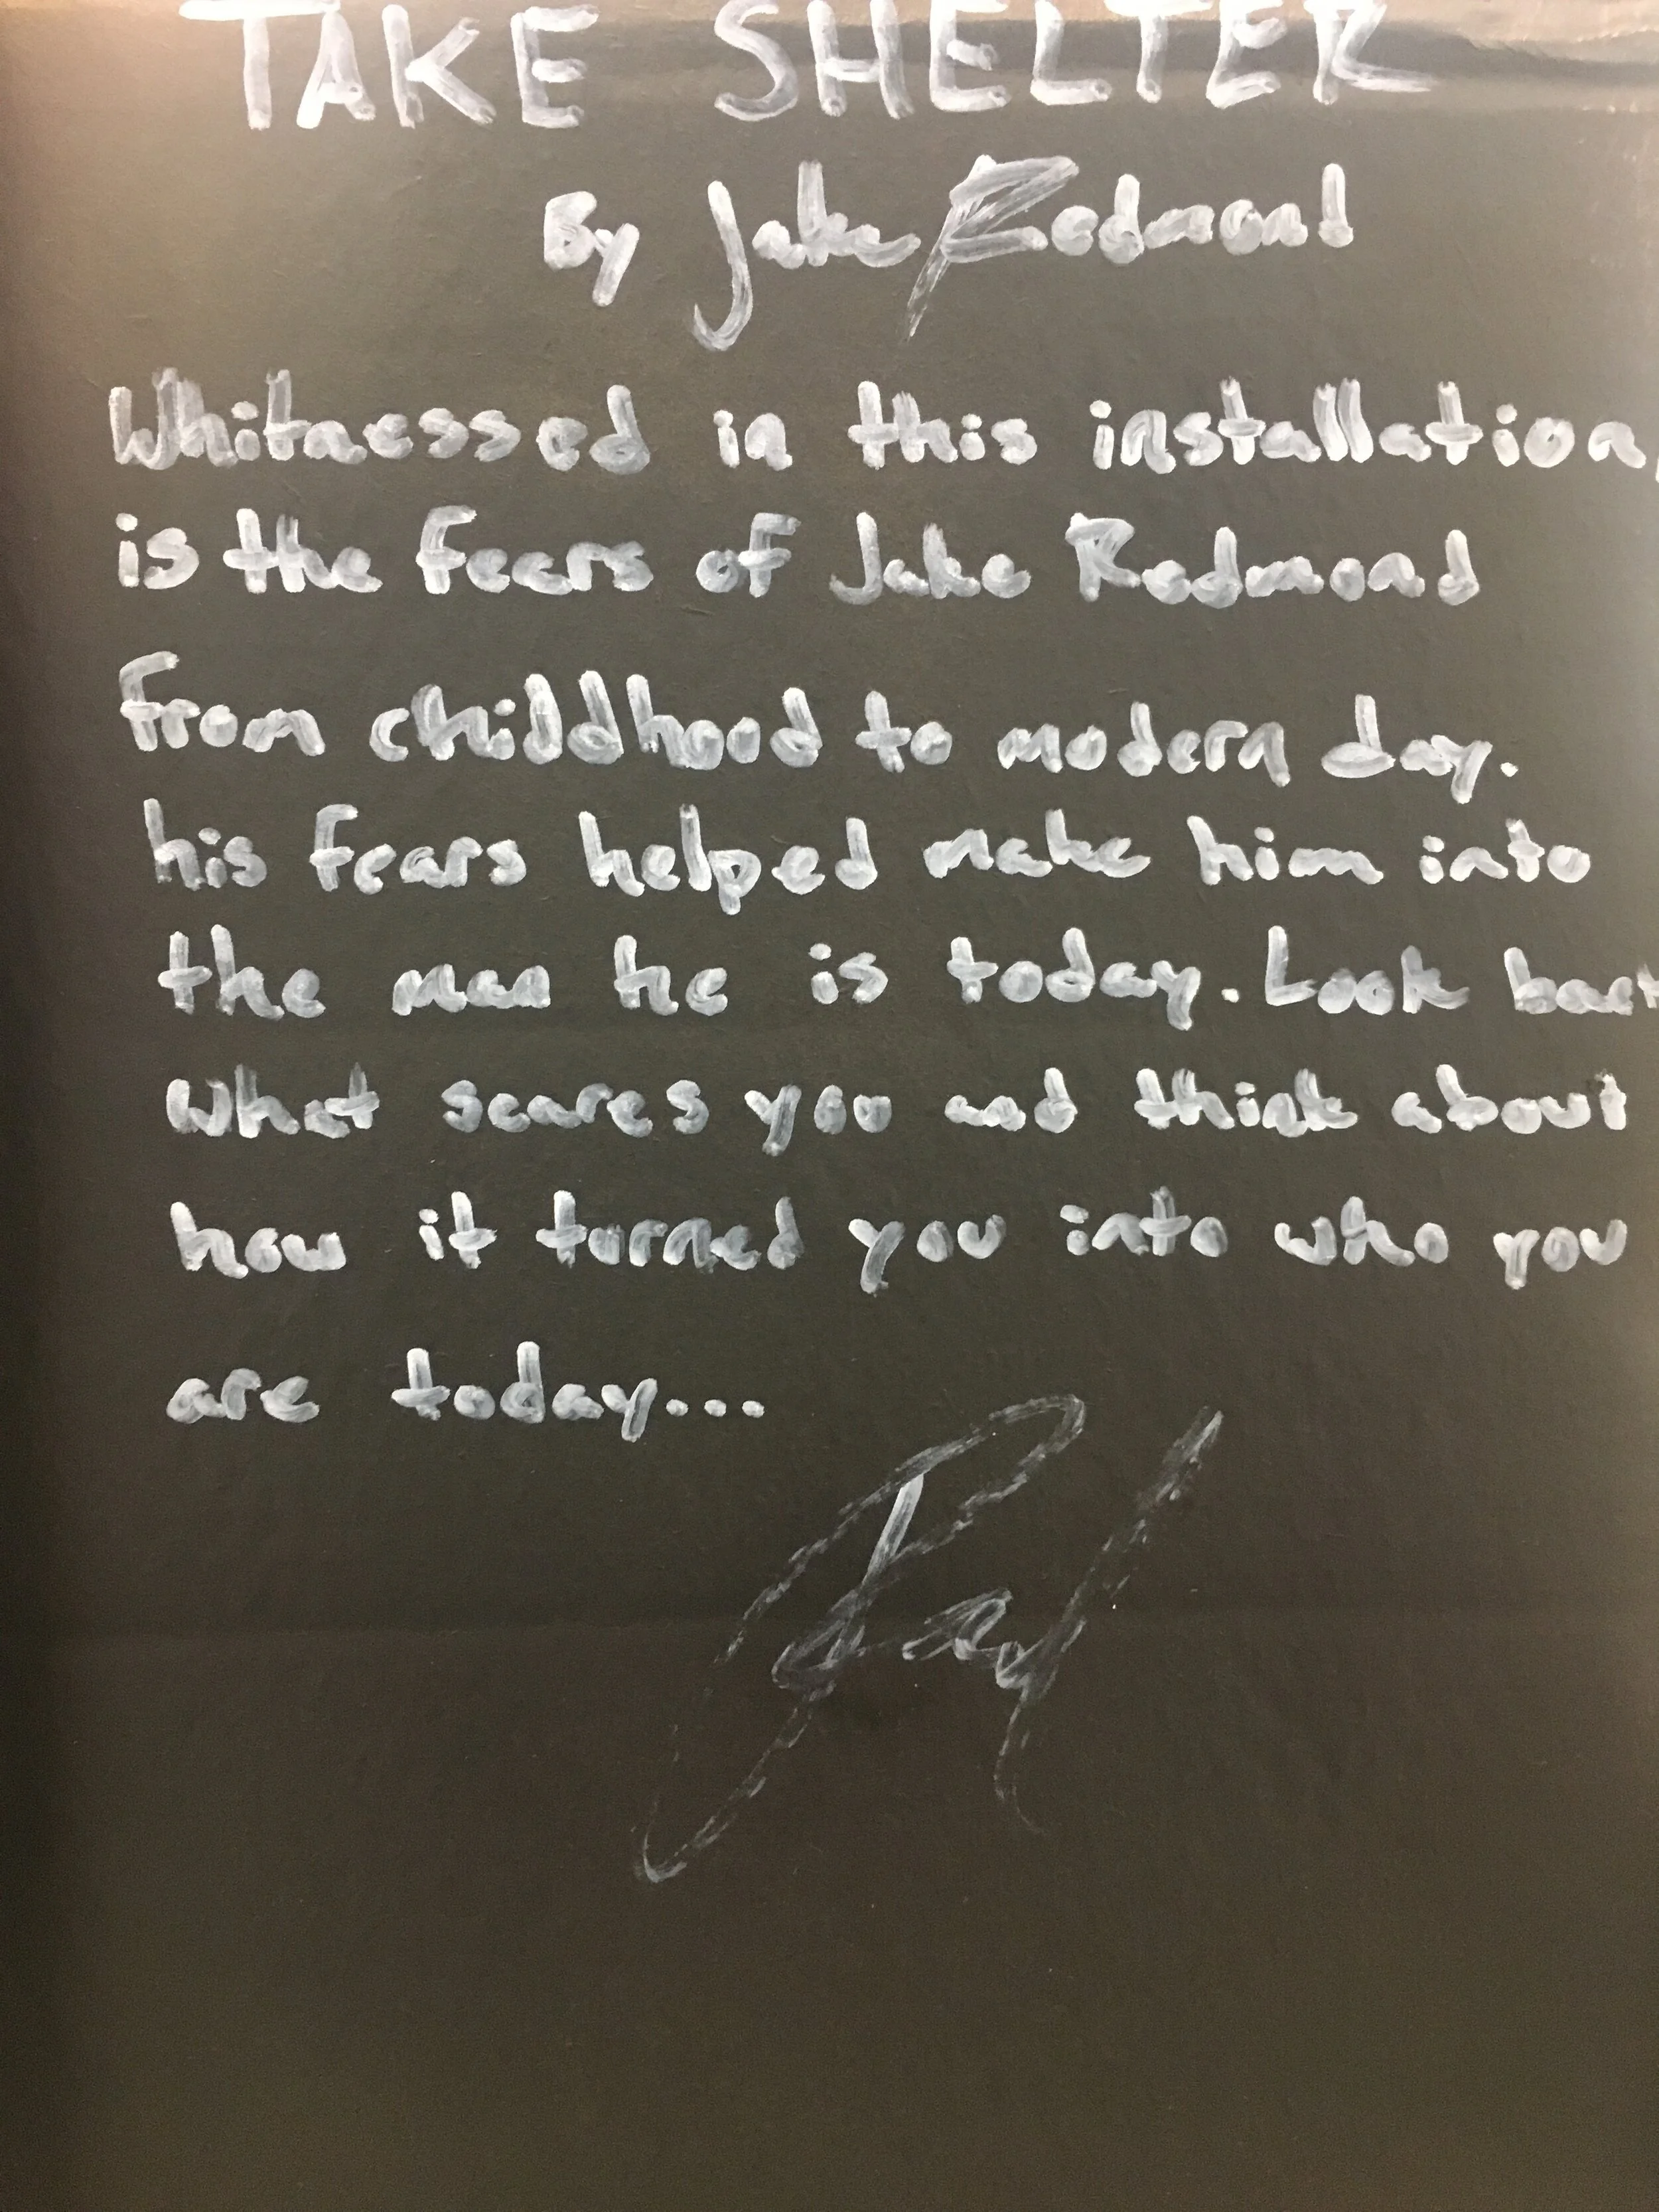 TAKE SHELTER
By Jake Redmond
Whitnessed in this installation,
is the fears of Jake Redmond
from childhood to modern day.
his fears helped make him into
the man he is today. Look back
what scares you and think about
how it turned you into who you
are today...